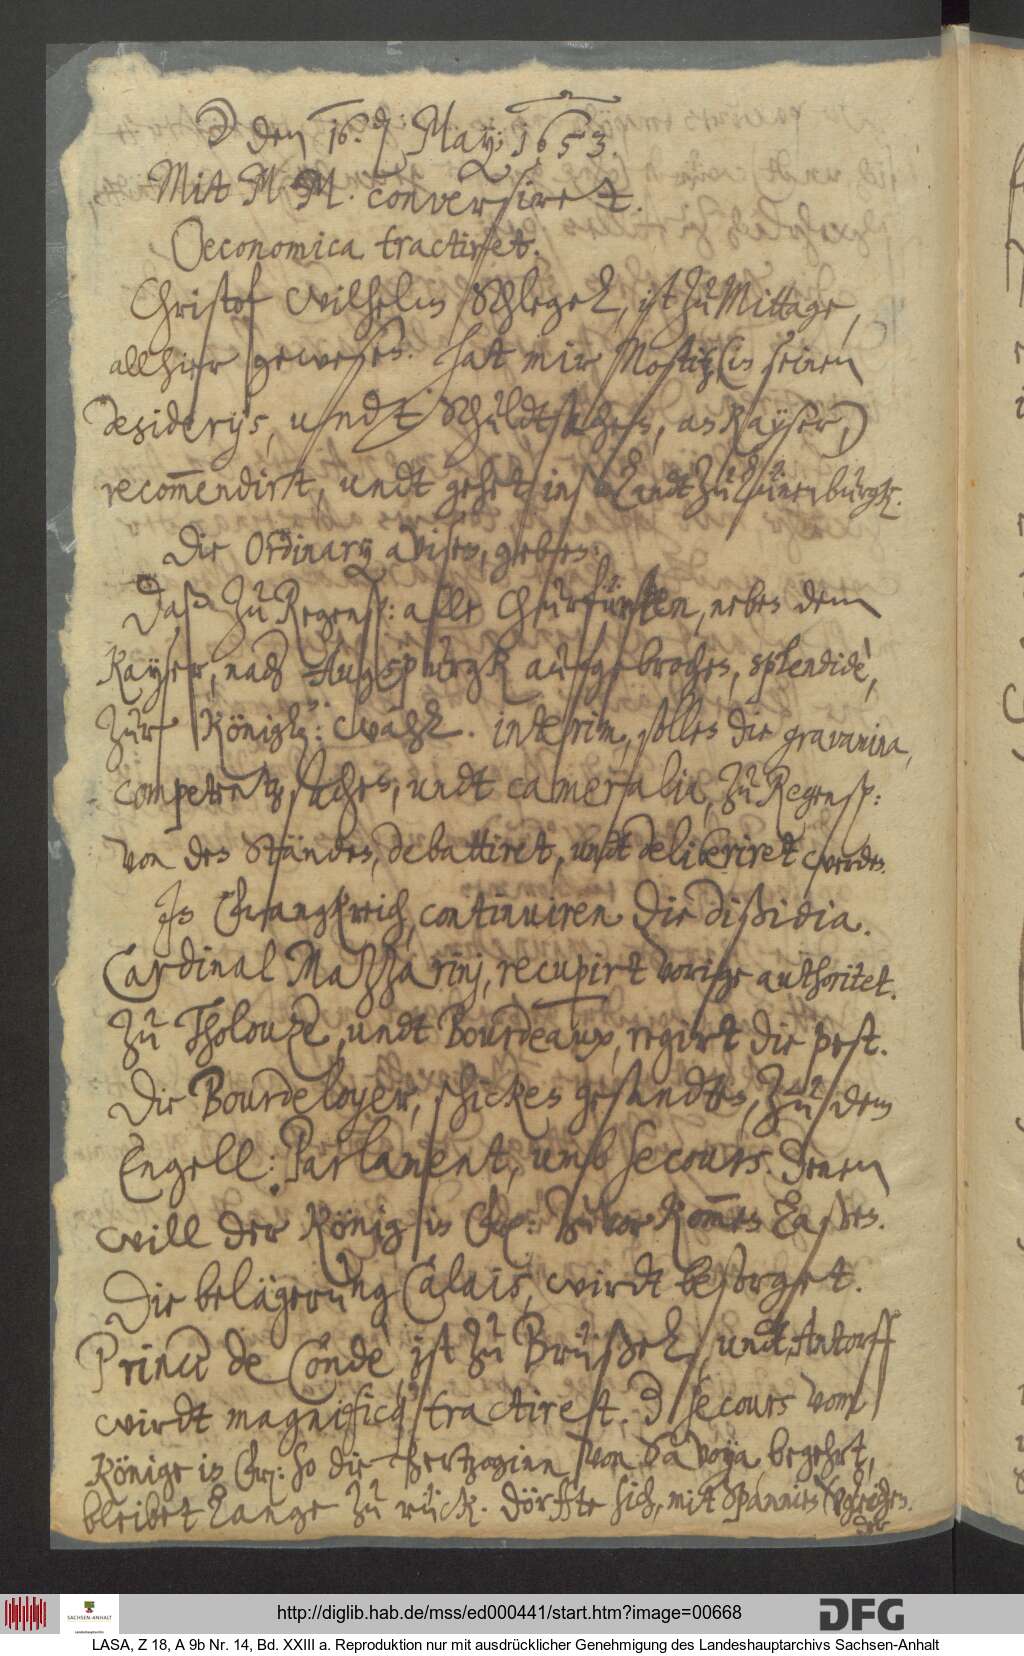 ☽ den 16.d May: 1653.
Mit M. M. conversiret.
Oeconomica tractiret.
Christof Wilhelm Schlegel, ist zu Mittage,
allhier gewesen. hat mir Nostitz (in seinen
desiderijs, undt Schuldtsachen, an Kayser,)
recom̅endirt, undt gehet inß Landt zu Lünenburgk.
Die Ordinarij avisen, geben:
Daß zu Regensp: alle Churfürsten, neben dem
Kayser, nach Augspurgk aufgebrochen, splendidè,
zur Königl: Wahl. interim, sollen die gravamina,
competentz sachen, undt cameralia, zu Regensp:
von den Ständen, debattiret, undt deliberiret werden.
In Frangkreich, continuiren die dißidia.
Cardinal Mazzarinj, recupirt vorige authoritet.
Zu Tholouze, undt Bourdeaux, regirt die pest.
Die Bourdeloyer, schicken gesandten, zu dem
Engell: Parlament, umb secours. denen
will der König in Fr: zuvor kom̅en laßen.
Die belägerung Calais, wirdt besorget.
Princi de Condè, ist zu Brüßel, undt Antorff
wirdt magnificè tractiret. Der secours vom
Könige in Fr: so die Hertzoginn von Savoya, begehrt,
bleibet lange zu rück. dörffte sich, mit Spannien vergleichen.
der
http://diglib.hab.de/mss/ed000441/start.htm?image=00668
DFG
SACHSEN-ANHALT
LASA, Z 18, A 9b Nr. 14, Bd. XXIII a. Reproduktion nur mit ausdrücklicher Genehmigung des Landeshauptarchivs Sachsen-Anhalt